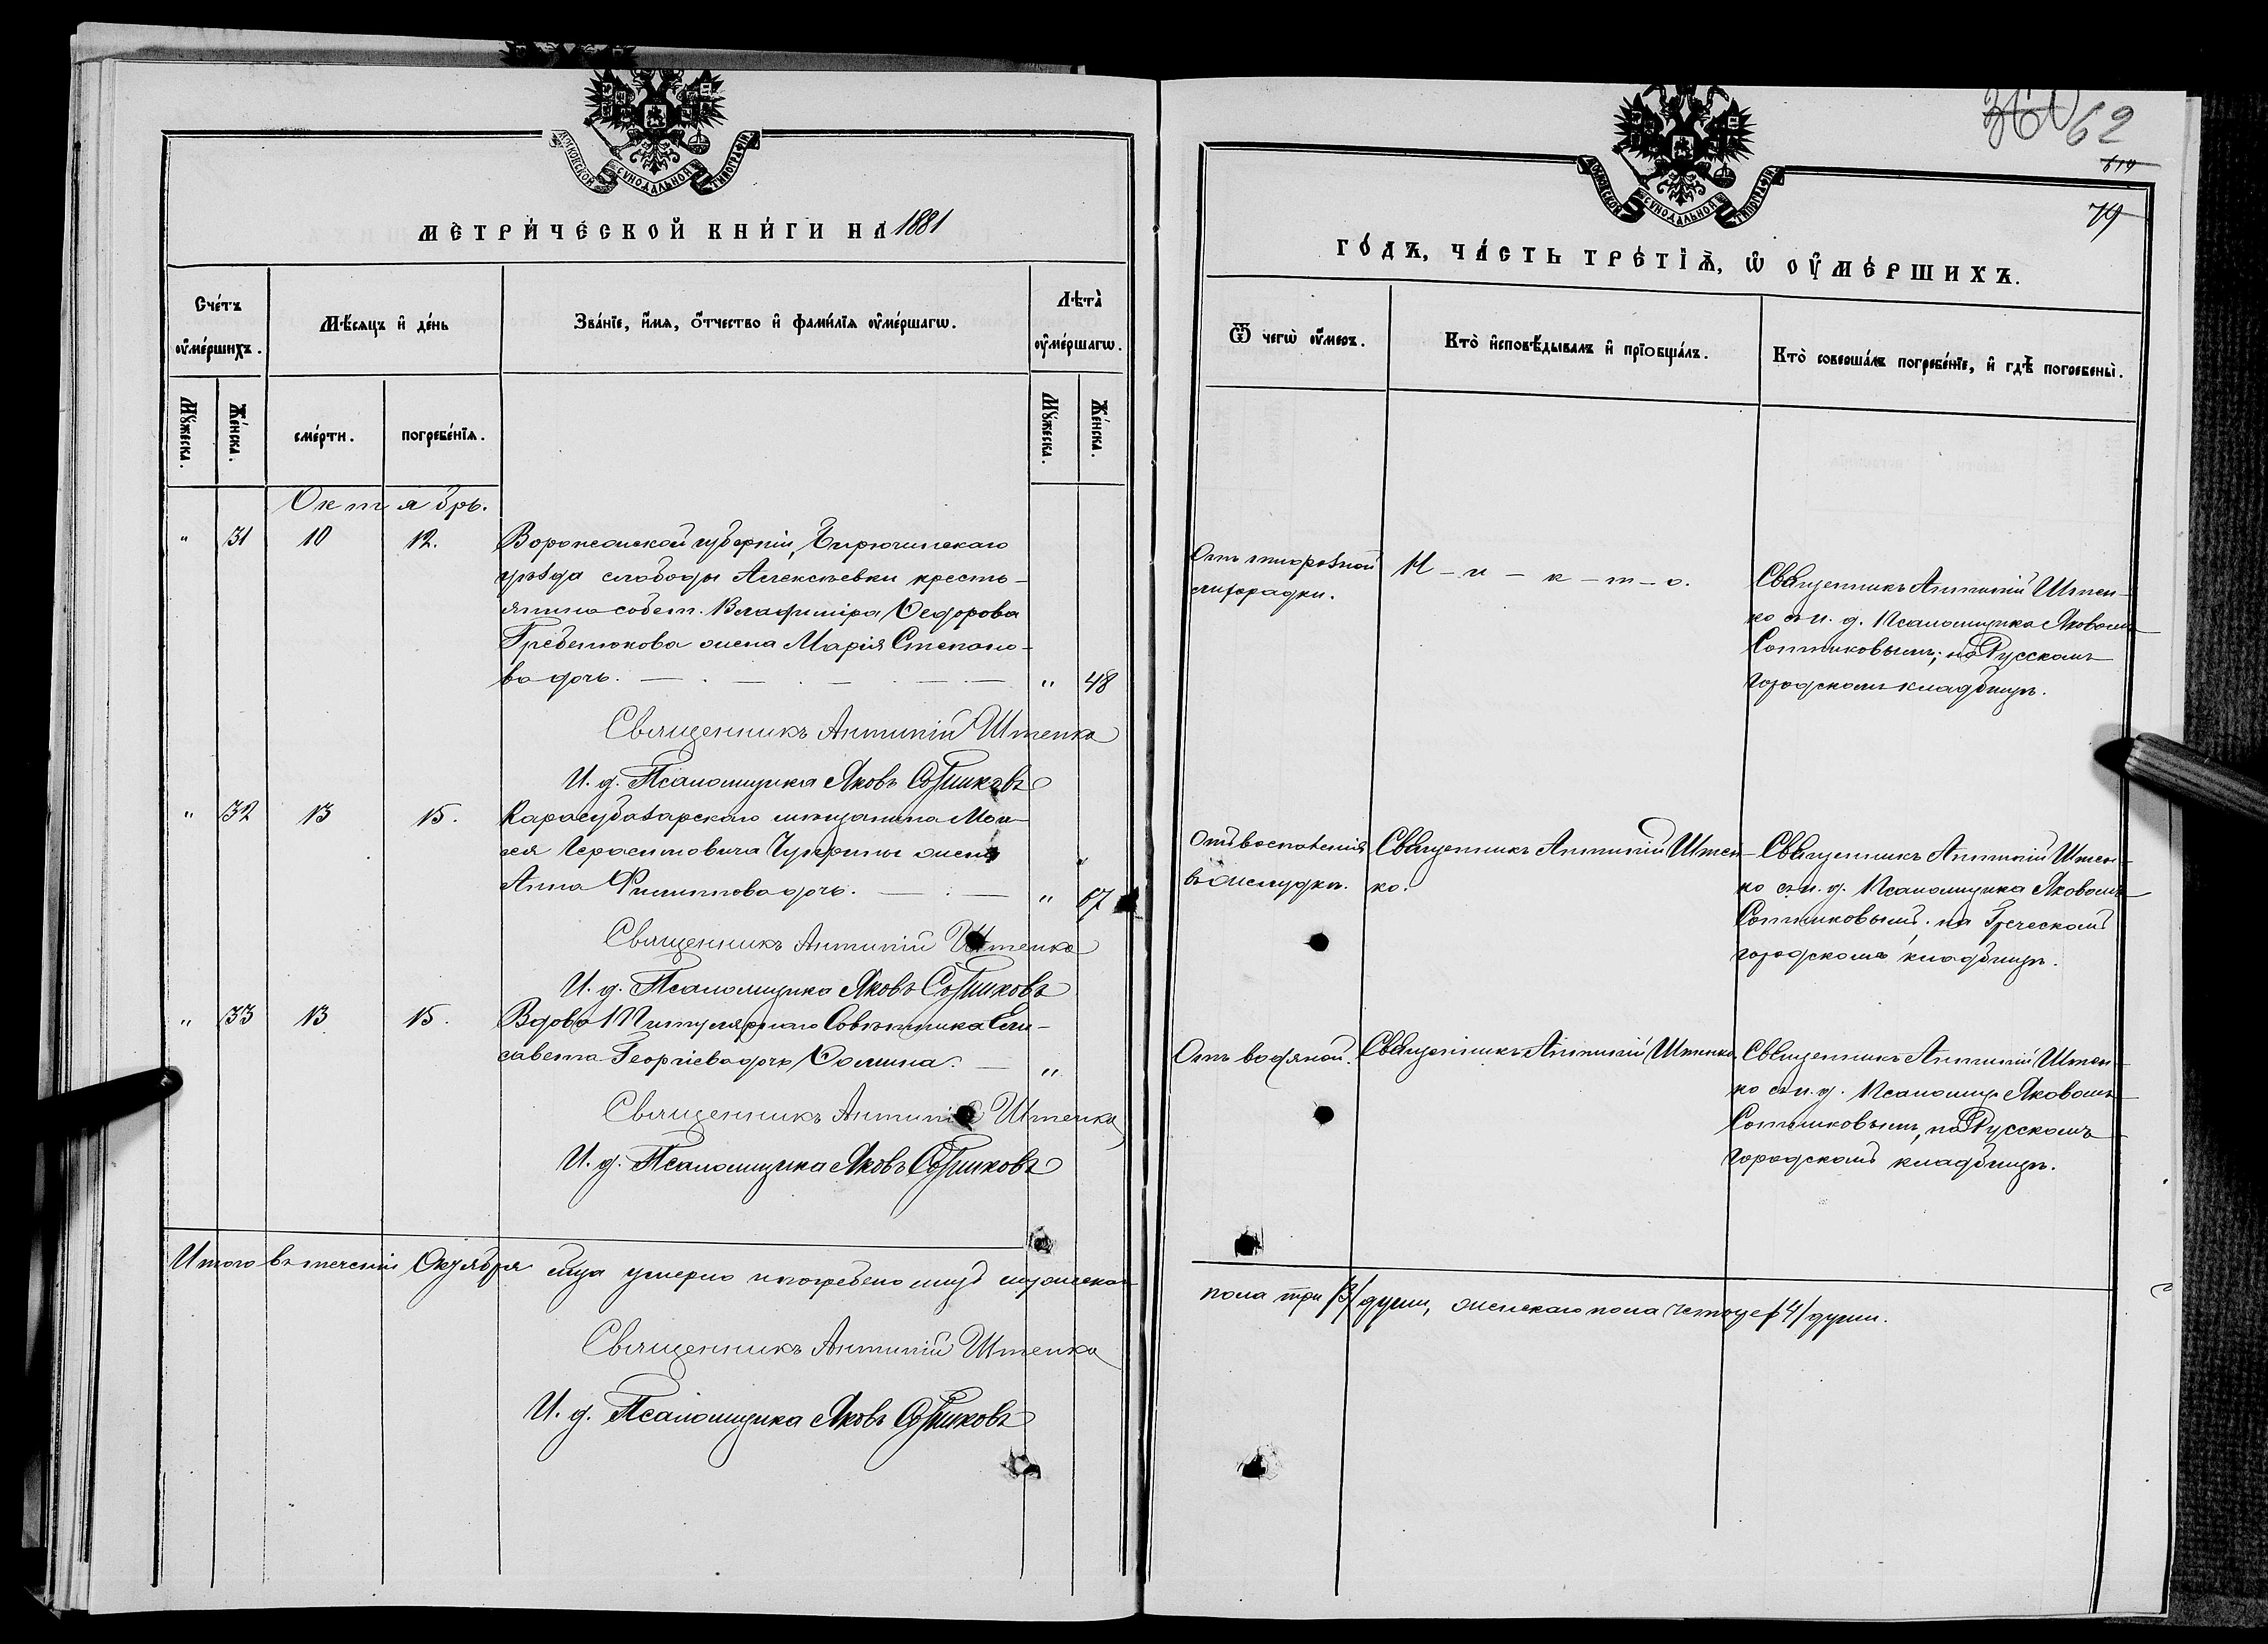 МОСКОВСКОЙ СѴНОДАЛЬНОЙ ТИПОГРАФІИ
МЕТРИ́ЧЕСКОЙ КНИ́ГИ НА 1881
Сче́тъ оу҆ме́ршихъ.
Мѣ́сяцъ и҆ де́нь
Зва́нїе, и҆́мѧ, ѻ҆́тчество и҆ фами́лїѧ оу҆ме́ршагѡ.
Лѣта̀ оу҆ме́ршагѡ.
Мꙋ́жеска.
Же́нска.
сме́рти.
погребе́нїѧ.
Мꙋ́жеска.
Же́нска.
Октябрь.
" 31 10 12. Воронежской губерніи, Бирюченскаго
уѣзда слободы Алексѣевки кресть-
янина собст. Владиміра Ѳедорова
Гребенюкова жена Марія Степано-
ва дочь. " 48
Священникъ Антипій Штенко
И. д. Псаломщика Яковъ Сотниковъ
" 32 13 15. Карасубазарскаго мѣщанина Мои-
сея Герасимовича жена
Анна Филиппова дочь. " 67
Священникъ Антипій Штенко
И. д. Псаломщика Яковъ Сотниковъ
" 33 13 15. Вдова Титулярнаго Совѣтника Ели-
савета Георгіева дочь Ѳомина. "
Священникъ Антипій Штенко
И. д. Псаломщика Яковъ Сотниковъ
Итого въ теченіи Октября м͠ца умерло и погребено лицъ мужеска
Священникъ Антипій Штенко
И. д. Псаломщика Яковъ Сотниковъ
360 62
610
79
МОСКОВСКОЙ СѴНОДАЛЬНОЙ ТИПОГРАФІИ
ГО́ДЪ, ЧА́СТЬ ТРЕ́ТЇѦ, Ѡ҆ ОУ҆МЕ́РШИХЪ.
Ѿ чегѡ̀ оу҆́меръ.
Кто̀ и҆сповѣ́дывалъ и҆ прїобща́лъ.
Кто̀ соверша́лъ погребе́нїе, и҆ гдѣ̀ погребены̀.
Отъ тифозной
лихорадки.
Н-и-к-т-о.
Священникъ Антипій Штен-
ко съ и. д. Псаломщика Яковомъ
Сотниковымъ; на Русскомъ
городскомъ кладбищѣ.
Отъ воспаленія
въ желудкѣ.
Священникъ Антипій Штен-
ко.
Священникъ Антипій Штен-
ко съ и. д. Псаломщика Яковомъ
Сотниковымъ, на Греческомъ
городскомъ кладбищѣ.
Отъ водяной.
Священникъ Антипій Штенко
Священникъ Антипій Штен-
ко съ и. д. Псаломщ. Яковомъ
Сотниковымъ, на Русскомъ
городскомъ кладбищѣ.
пола три /3/ души, женскаго пола четыре /4/ души.